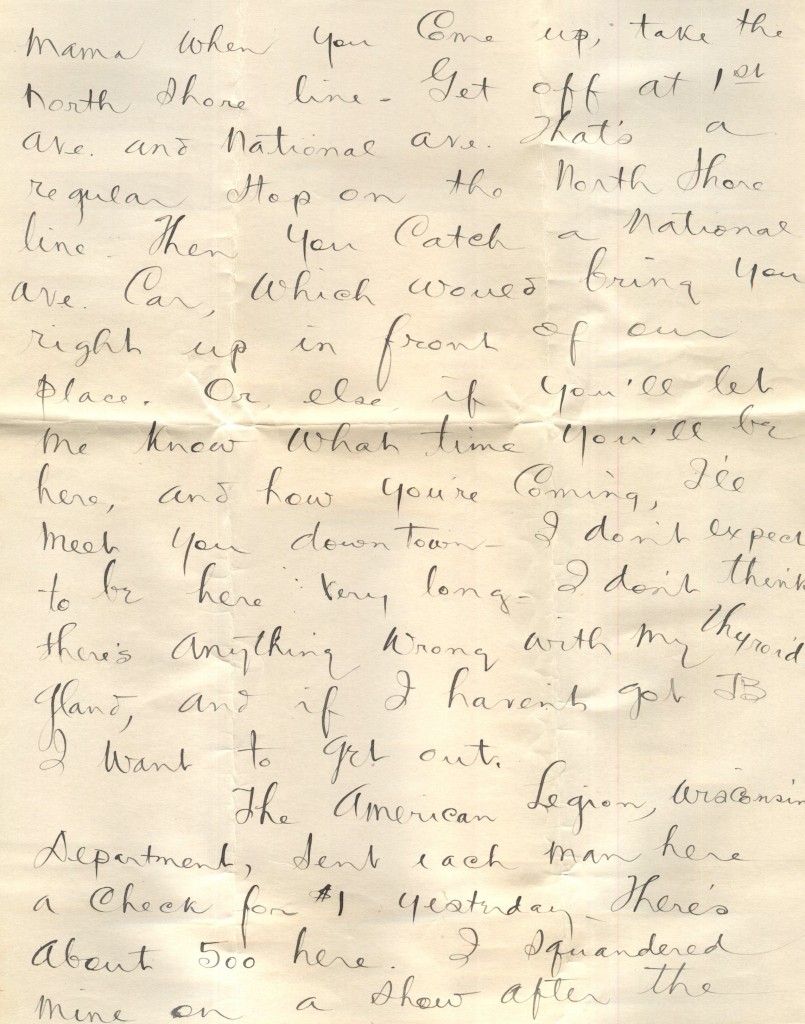 Mama when you come up, take the
North Shore line - Get off at 1st
Ave. and National Ave. That's a
regular stop on the North Shore
line - Then you catch a National
Ave. Car, which would bring you
right up in front of our
place. Or else if you'll let
me know what time you'll be
here, and how you're coming, I'll
meet you downtown - I don't expect
to be here very long - I don't think
there's anything wrong with my thyroid
gland, and if I haven't got TB
I want to get out.
The American Legion, Wisconsin
Department, sent each man here
a check for $1 yesterday - There's
about 500 here. I squandered
mine on a show after the